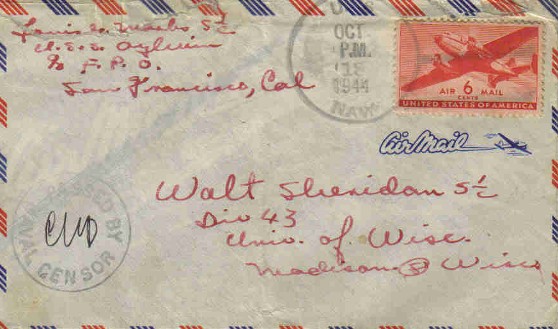 Louis S⁠/c
U.S.S. Aylwin
℅ F.P.O.
San Francisco, Cal
U.S.
OCT
P.M.
1944
NAVY
AIR 6 MAIL
CENTS
UNITED STATES OF AMERICA
Air Mail
Walt Sheridan S⁠/c
Div 43
Univ. of Wisc.
Madison Wisco
PASSED BY
NAVAL CENSOR